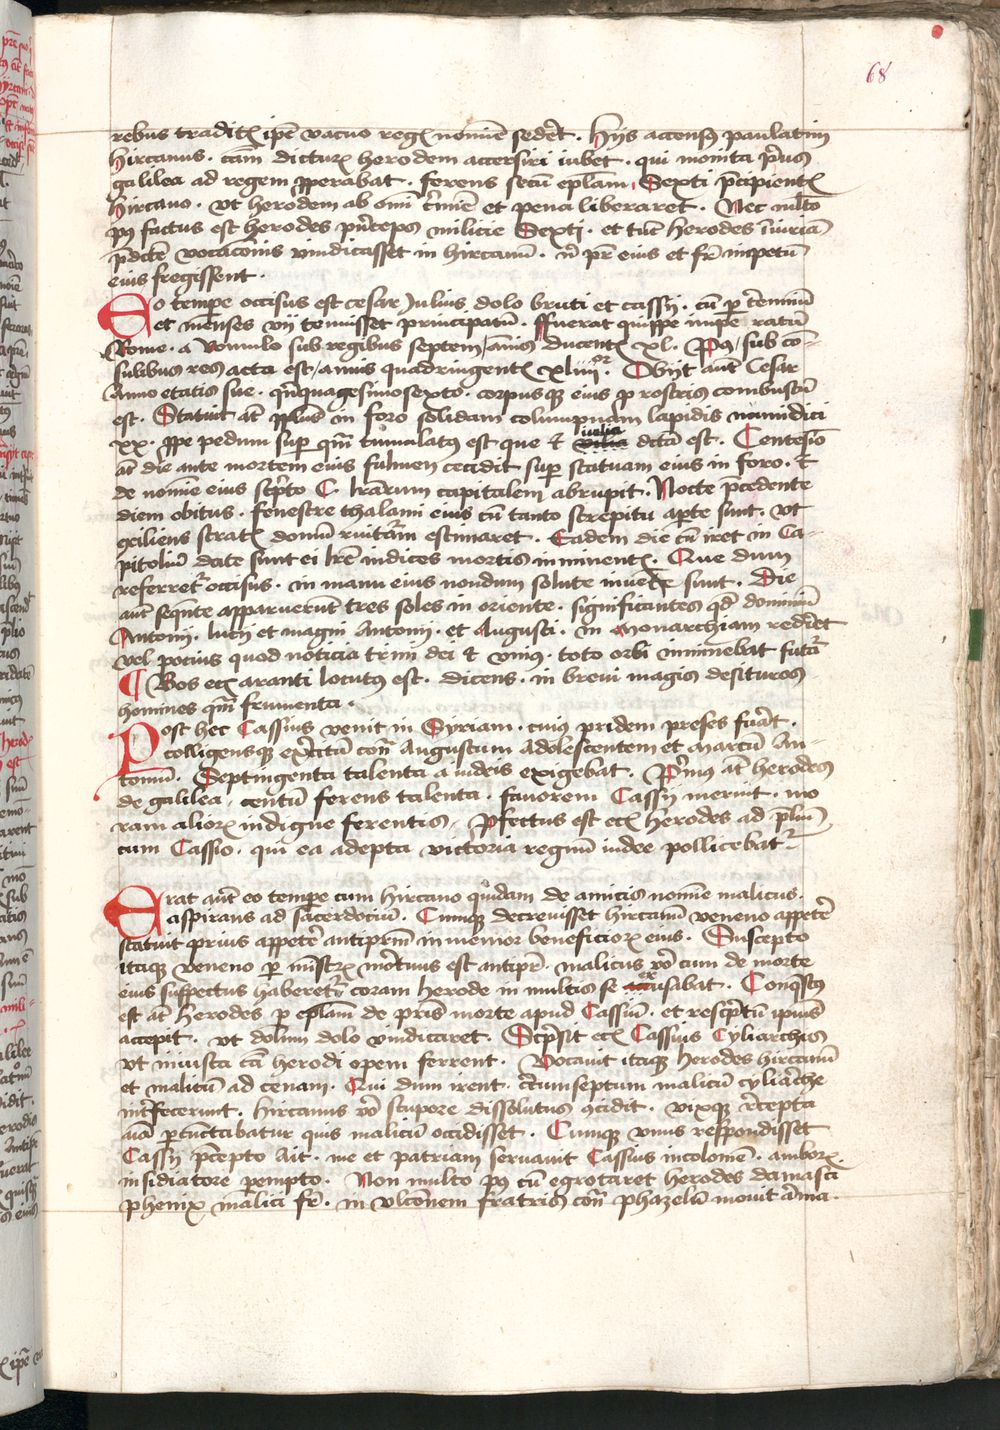 68
rebus traditꝭ ip̄e vacuo regꝭ nomīe seder̄t . Hijs accensꝰ paulatim
hircanus . cām dicturꝝ herodem accersiri iubet . qui monita p̄us
galilea ad regem ꝓperabat . ferens secū ep̄lam Sexti p̄cipientꝭ
hircano . vt herodem ab om̄i c̄mīe et pena liberaret . Nec m̄lto
pꝰ factus est herodes p̄nceps milicie Sexti . et tūc herodes īiuriā
p̄dc̄e vocac̄onis vindicasset in hircanū . n̄ pr̄ eius et fr̄ impetū
eius fregissent .
Eo tempe occisus est cesar Julius dolo bruti et cassij . cū ꝑ t̄enniū
et menses vij tenuisset principatū . ffuerat quippe impe ratū
Rome . a Romulo sub regibus septem / annis ducentꝭ xl . Pꝰ / sub co-
sulibus res acta est / annis quadringentꝭ xliiijor . Obijt aūt Cesar
Anno etatis sue . qn̄quagesimosexto . corpusqꝫ eius ꝓ rostris combustū
est . Statuit āt pplus in foro solidam columpnam lapidis numidici
xx . ꝓpe pedum suꝑ qm̄ tumulatꝰ est que ⁊ iulia dcta est . Centesīo
āt die ante mortem eius fulmen cecidit suꝑ statuam eius in foro . ⁊
de nomīe eius sc̄pto C . lr̄arum capitalem abrupit . Nocte p̄cedente
diem obitus . fenestre thalami eius cū tanto strepitu aꝑte sunt . vt
exiliens stratꝭ domū ruiturā estimaret . Eadem die cū iret in Ca-
pitoliū date sunt ei lr̄e indices mortis imminentꝭ . Que dum
referretur occisus . in manu eius nondum solute inuente sunt . Die
aūt seqn̄te apparuerūt tres soles in oriente . significantes qd̄ dominiū
Antonij . lucij et magni Antonij . et Augusti . in monarchiam rediret
vel potius quod noticia trini dei ⁊ vnius . toto orbi imminebat futūa
Bos ecꝭ aranti locutꝰ est . dicens . in breui magis desituros
homines qm̄ frumenta .
Post hec Cassius venit in Syriam . cuius pridem preses fuāt .
colligensqꝫ ex̄citū con̄ Augustum Adolescentem et marcū An-
toniū . Septingenta talenta a iudeis exigebat . P̄mus āt herodes
de galilea . centū ferens talenta . fauorem Cassij meruit . mo
ram aliorꝝ indigne ferentis . Ꝓfectus est ecꝭ herodes ad p̄liū
cum Cassio . qui ea adepta victoria regnū iudee pollicebatur
Erat aūt eo tempe cum hircano quidam de amicis nomīe malicus .
aspirans ad sacerdociū . Cumqꝫ decreuisset hircanū veneno appete͛
statuit prius appete͛ antipr̄m inmemor beneficiorꝝ eius . Suscepto
itaqꝫ veneno ꝑ mīstrꝝ mortuus est antipr̄ . malicus vo͛ cum de morte
eius suspectus haberetur coram herode in multis se excusabat . Conqūstꝰ
est āt herodes ꝑ ep̄lam de pr̄is morte apud Cassiū . et rescp̄tū ipsius
accepit . vt dolum dolo vindicaret . Sc̄psit ecꝭ Cassius Cyliarchis
vt iniusta cā herodi opem ferrent . Vocauit itaqꝫ herodes hircanū
et malicū ad cenam . Qui dum irent . c̄cumseptum malicū cyliarche
int͛fecerunt . hircanus vo͛ stupore dissolutus ꝯcidit . vixqꝫ r̄cepta
aīa ꝑcunctabatur quis malicū occidisset . Cumqꝫ vnus respondisset
Cassij p̄cepto Ait . me et patriam seruauit Cassius incolomē . amborꝝ
insidiatore ꝑempto . Non multo pꝰ cū egrotaret herodes damasci
phenix malici fr̄ . in vlcōnem fratris con̄ phazelū mouit arma .